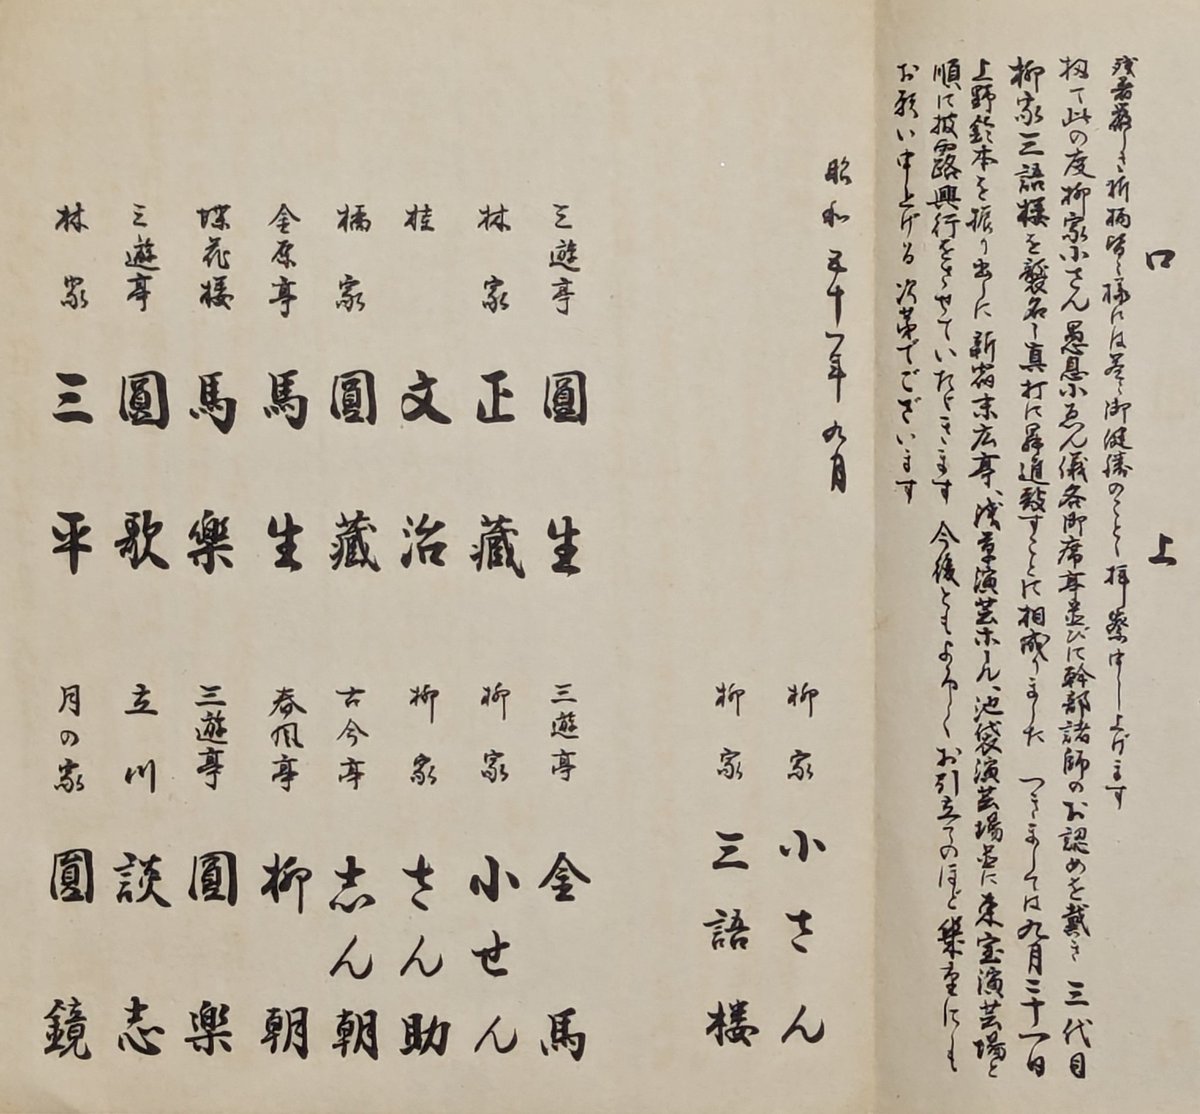 口上
残暑厳しき折柄皆々様には益々御健勝のことゝ拝察申し上げます
扨て此の度柳家小さん愚息小ゑん儀各御席亭並びに幹部諸師のお認めを戴き 三代目
柳家三語楼を襲名し真打に昇進致すことに相成りました つきましては九月二十一日
上野鈴本を振り出しに新宿末広亭、浅草演芸ホール、池袋演芸場並に東宝演芸場と
順に披露興行をさせていたゞきます 今後ともよろしくお引立てのほど楽屋にも
お願い申上げる次第でございます
昭和五十一年九月
柳家小さん
柳家三語楼
三遊亭圓生
林家正蔵
桂文治
橘家圓蔵
金原亭馬生
蝶花楼馬楽
三遊亭圓歌
林家三平
三遊亭金馬
柳家小せん
柳家さん助
古今亭志ん朝
春風亭柳朝
三遊亭圓楽
立川談志
月の家圓鏡